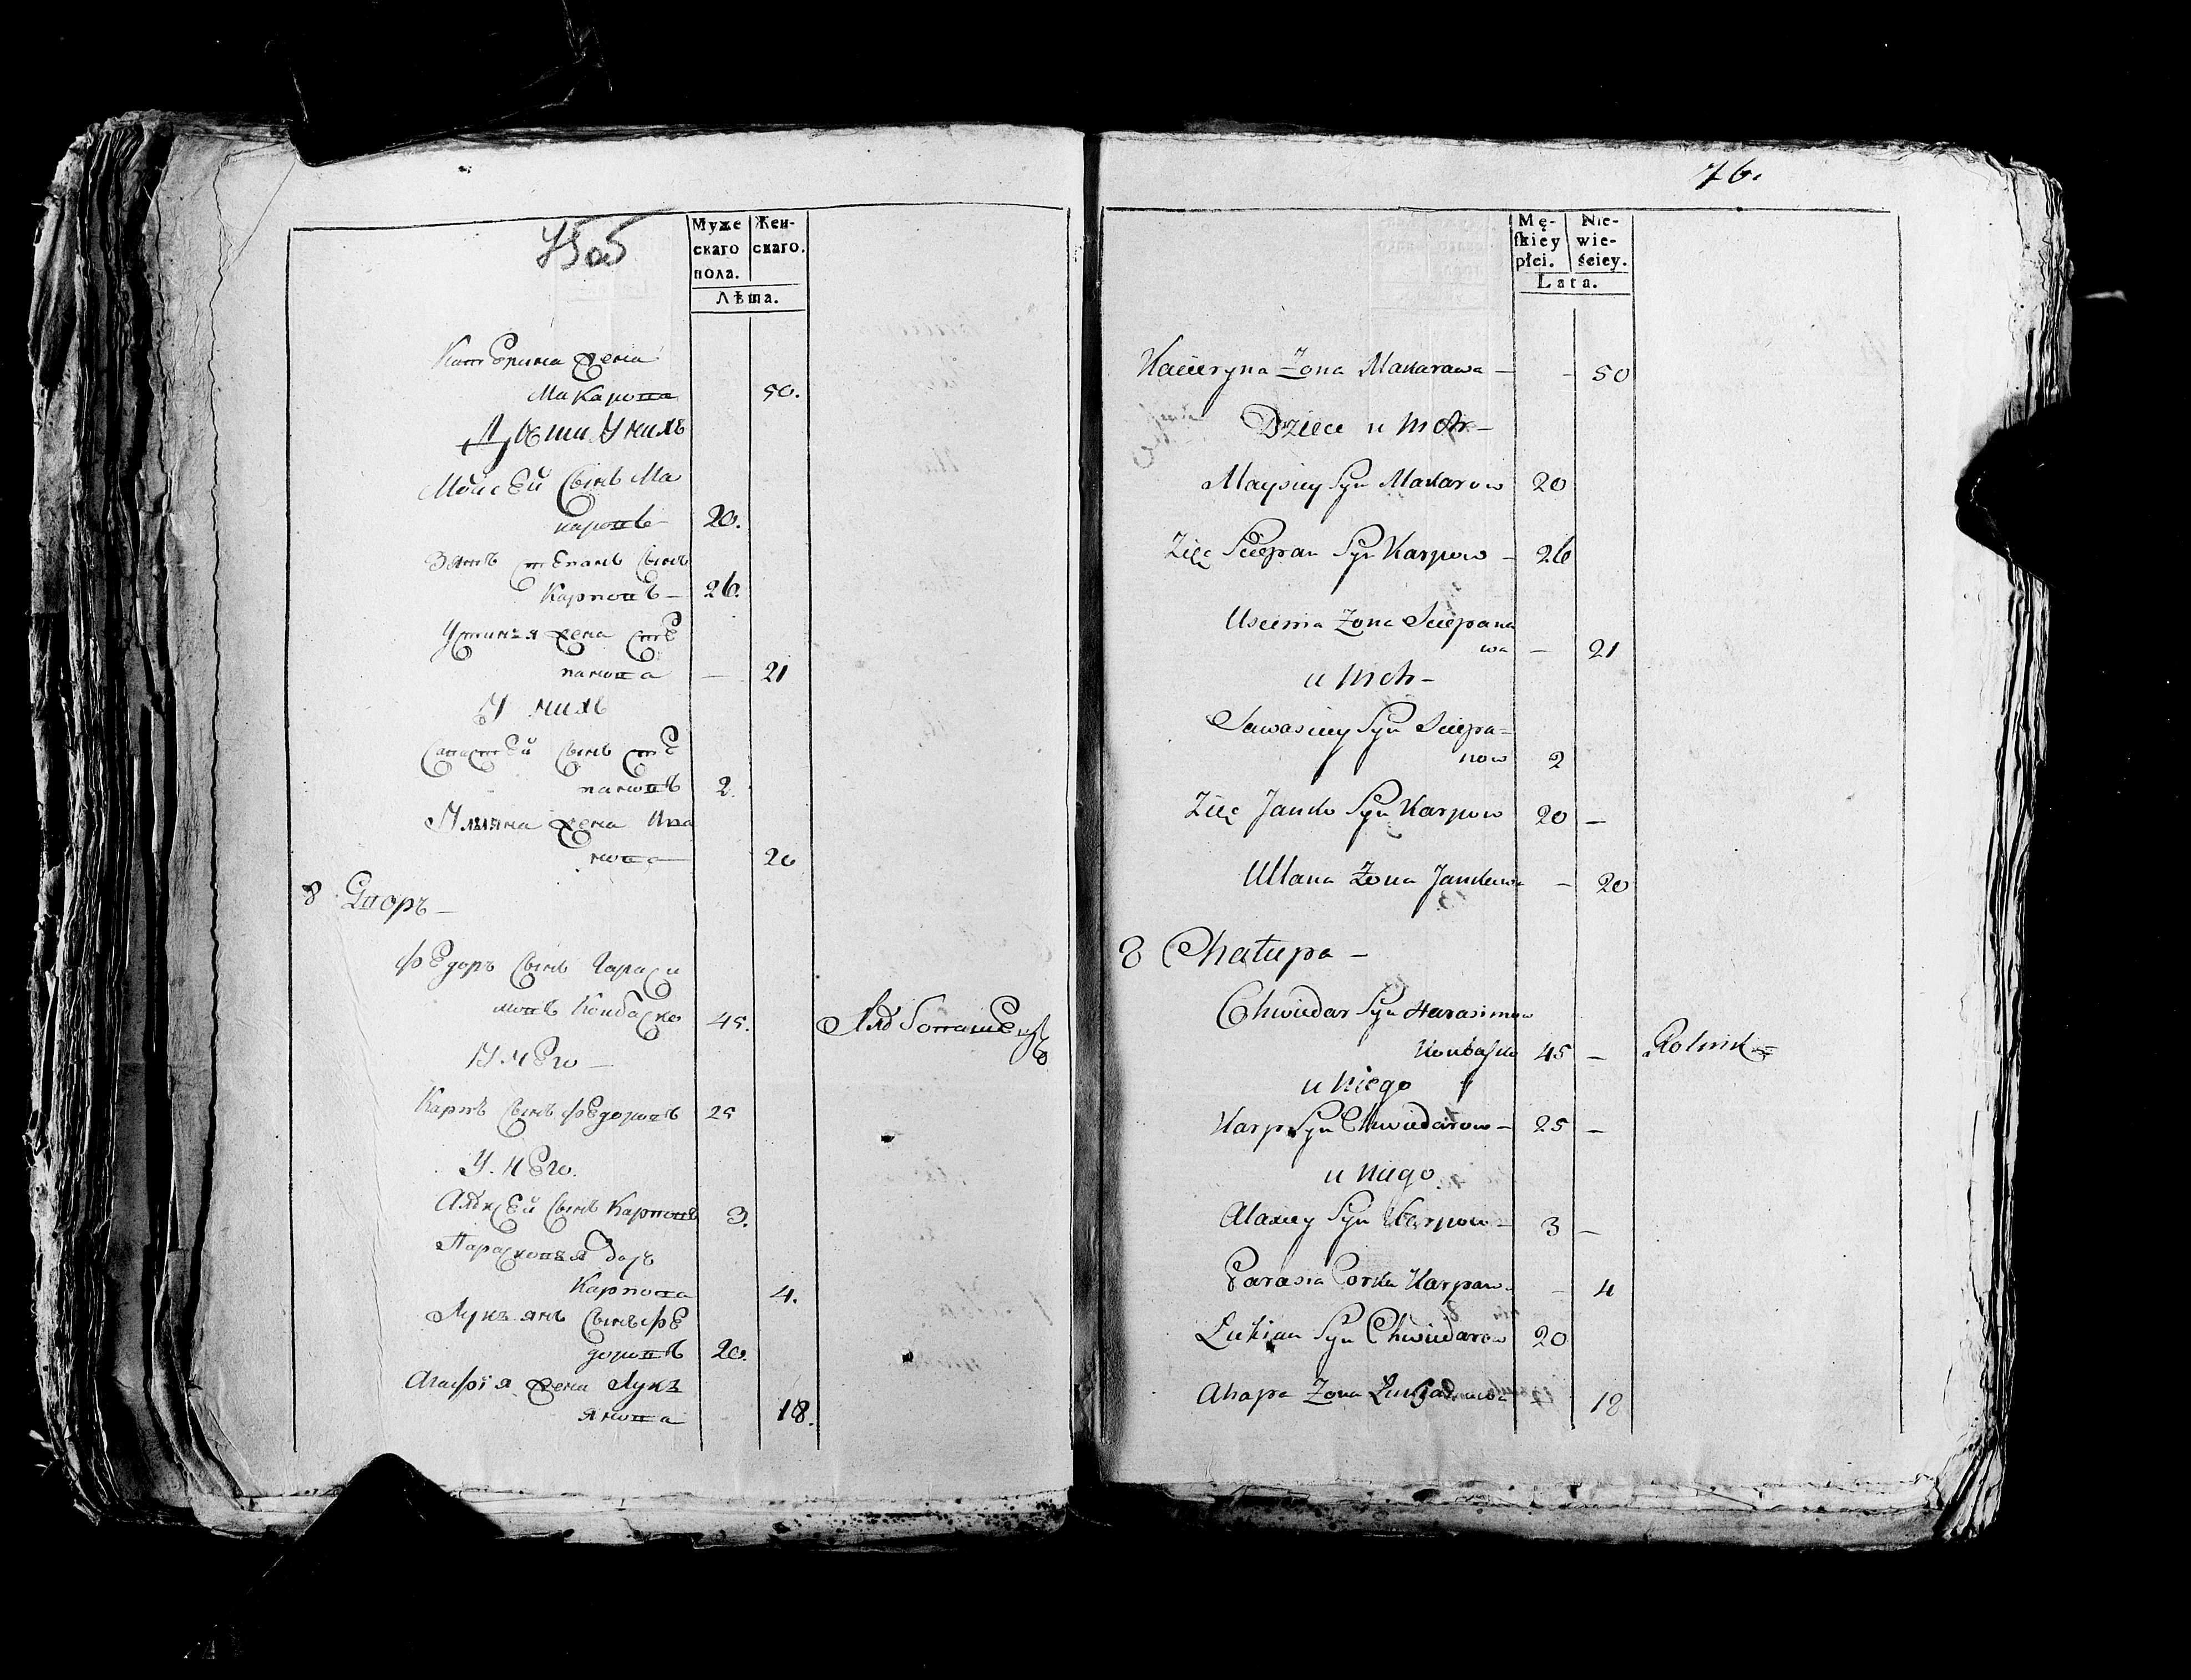 75об
Муже Жен-
скаго скаго.
пола.
Лѣта.
Катерина жена
Макарова 50.
Дѣти У нихъ
Мойсей сынъ Ма
каровъ 20.
Зять степанъ сынъ
Карповъ — 26.
Устинья жена сте
панова — 21
У нихъ
Савастей сынъ сте
пановъ 2.
Ульяна жена Ива
нова 20
8 Дворъ —
Федоръ сынъ Гараси
мовъ Конбаско 45.
У него —
Карпъ сынъ федоровъ 25
У него.
Алексей сынъ Карповъ 3.
Парасковья дочь
Карпова 4.
Лукъянъ сынъ фе
доровъ 20.
Агафія жена Лукъ
янова 18.
76.
Mę- Nie-
skiey wie-
płci. ściey.
Lata.
Kacieryna Żona Makarawa — - 50
Dzieci u nich —
Maysiey Syn Makarow 20
Zięć Sciepan Syn Karpow — 26
Uscinia Żona Sciepana
wa — 21
u nich —
Sawasciey Syn Sciepa=
now 2
Zięć Janko Syn Karpow 20 —
Ullana Żona Jankowa — 20
8 Chałupa —
Chwiedar Syn Harasimow
Konbasko 45 — Rolnik
u niego
Karp Syn Chwiedarow — 25 —
u niego
Alaxiey Syn Karpow — 3 —
Parasia Corka Karpaw. - 4
Łukian Syn Chwiedarow 20
Ahapa Żona 18